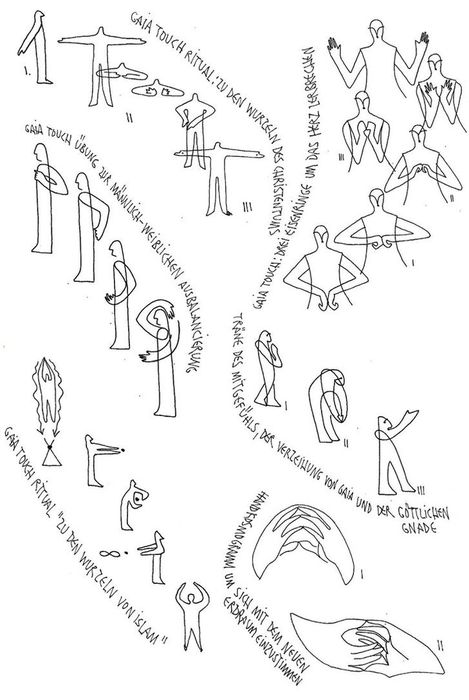 GAIA TOUCH RITUAL: ZU DEN WURZELN DES CHRISTENTUMS
I.
II
III
GAIA TOUCH: DREI EISENRINGE UM DAS HERZ ZERBRECHEN
III
II
I
GAIA TOUCH ÜBUNG ZUR MÄNNLICH-WEIBLICHEN AUSBALANCIERUNG
TRÄNE DES MITGEFÜHLS, DER VERZEIHUNG VON GAIA UND DER GÖTTLICHEN
GNADE
I
II
III
GAIA TOUCH RITUAL "ZU DEN WURZELN VON ISLAM"
HANDKOSMOGRAMM UM
SICH MIT DEM NEUEN
ERDRAUM EINZUSTIMMEN
I
II